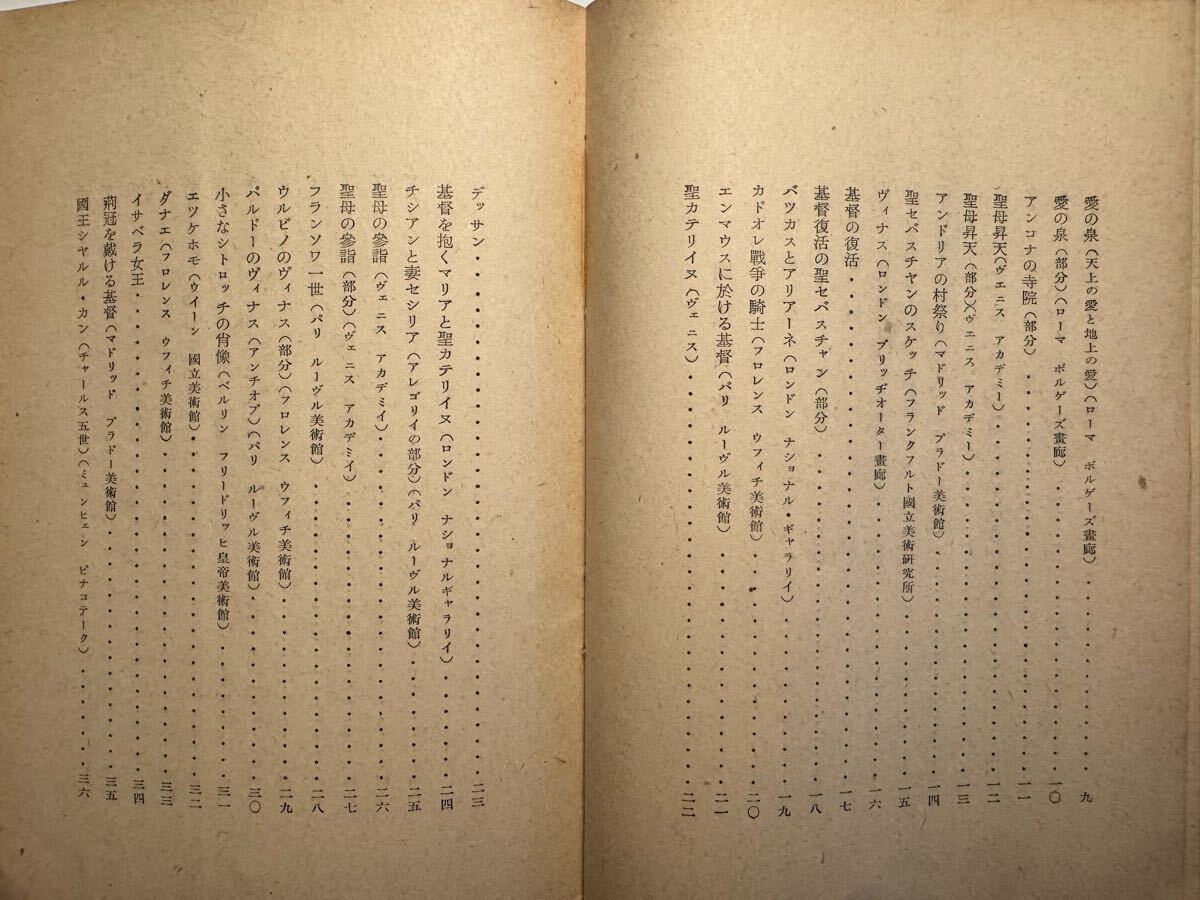 愛の泉(天上の愛と地上の愛)(ローマ ボルゲーズ畫廊)・・・・・・・・九
愛の泉(部分)(ローマ ボルゲーズ畫廊)・・・・・・・・・・・・一〇
アンコナの寺院(部分)・・・・・・・・・・・・・・・・・一一
聖母昇天(ヴエニス アカデミー)・・・・・・・・・・・・・・一二
聖母昇天(部分)(ヴエニス アカデミー)・・・・・・・・・・・・一三
アンドリアの村祭り(マドリッド プラドー美術館)・・・・・・・・・一四
聖セバスチヤンのスケッチ(フランクフルト國立美術研究所)・・・・・・・一五
ヴィナス(ロンドン ブリッヂオーター畫廊)・・・・・・・・・・・一六
基督の復活・・・・・・・・・・・・・・・・・・・・・一七
基督復活の聖セバスチャン(部分)・・・・・・・・・・・・・・一八
バツカスとアリアーネ(ロンドン ナショナル・ギャラリイ)・・・・・・・一九
カドオレ戰爭の騎士(フロレンス ウフィチ美術館)・・・・・・・・・二〇
エンマウスに於ける基督(パリ ルーヴル美術館)・・・・・・・・・・二一
聖カテリイヌ(ヴェニス)・・・・・・・・・・・・・・・・・二二
デッサン・・・・・・・・・・・・・・・・・・・・・・二三
基督を抱くマリアと聖カテリイヌ(ロンドン ナショナルギャラリイ)・・・・・二四
チシアンと妻セシリア(アレゴリイの部分)(パリ ルーヴル美術館)・・・・・二五
聖母の參詣(ヴェニス アカデミイ)・・・・・・・・・・・・・・二六
聖母の參詣(部分)(ヴェニス アカデミイ)・・・・・・・・・・・二七
フランソワ一世(パリ ルーヴル美術館)・・・・・・・・・・・・二八
ウルビノのヴィナス(部分)(フロレンス ウフィチ美術館)・・・・・・・二九
パルドーのヴィナス(アンチオプ)(パリ ルーヴル美術館)・・・・・・・三〇
小さなシトロッチの肖像(ベルリン フリードリッヒ皇帝美術館)・・・・・・三一
エツケホモ(ウイーン 國立美術館)・・・・・・・・・・・・・・三二
ダナエ(フロレンス ウフィチ美術館)・・・・・・・・・・・・・三三
イサベラ女王・・・・・・・・・・・・・・・・・・・・三四
荊冠を戴ける基督(マドリッド プラドー美術館)・・・・・・・・・・三五
國王シヤルル・カン(チャールス五世)(ミュンヒェン ピナコテーク)・・・・・三六